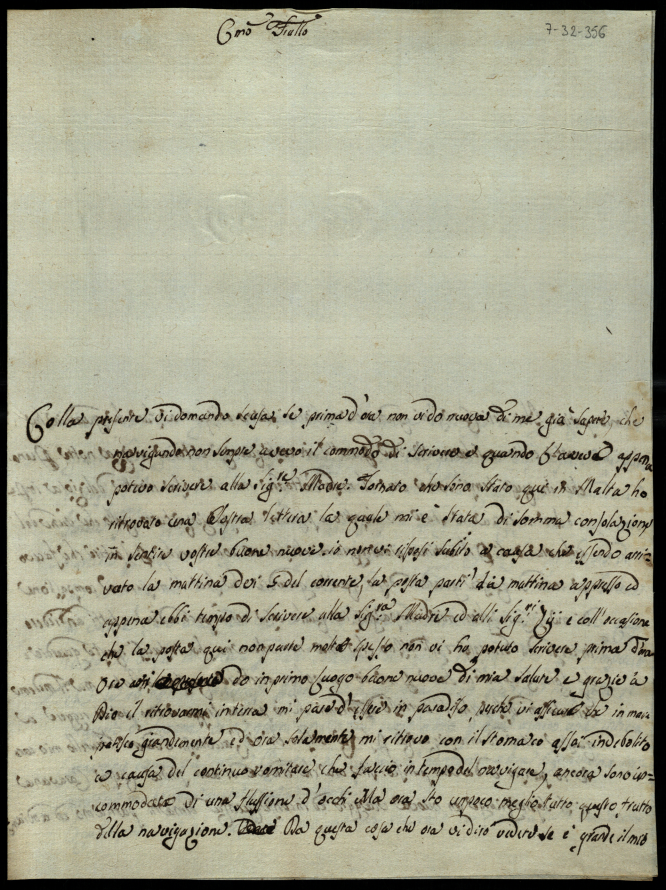 Cmo Frallo
7-32-356
Colla presente vi domando scusa, se prima d'ora non vi do nuova di me già saprete, che
navigando non sempre avevo il commodo di scrivere e quando stavvo appena
potevo scrivere alla Sig.re Madre. Tornato che sono stato qui in Malta ho
ritrovato una Vostra lettera la quale mi è stata di somma consolazione
in sentire vostre buone nuove. io non vi risposi subito a causa che essendo arri-
vato la mattina dei 5 del corrente, la posta partì la mattina appresso ed
appena ebbi tempo di scrivere alla Sig.ra Madre ed alli Sig.ri Zij e coll'occasione
che la posta qui non parte molto spesso non vi ho potuto scrivere prima d'ora
Ora vi do in primo luogo buone nuove di mia salute e grazie a
Dio il ritrovarmi in terra mi pare d'essere in paradiso perché vi assicuro che in mare
patisco grandemente ed ora solamente mi ritrovo con il stomaco assai indebolito
a causa del continuo vomitare che facevo in tempo del navigare, ancora sono in-
commodato di una flussione d'occhi ma ora sto un poco meglio tutto questo frutto
della navigazione. Da questa cosa che ora vi dirò vedere se è grande il mio